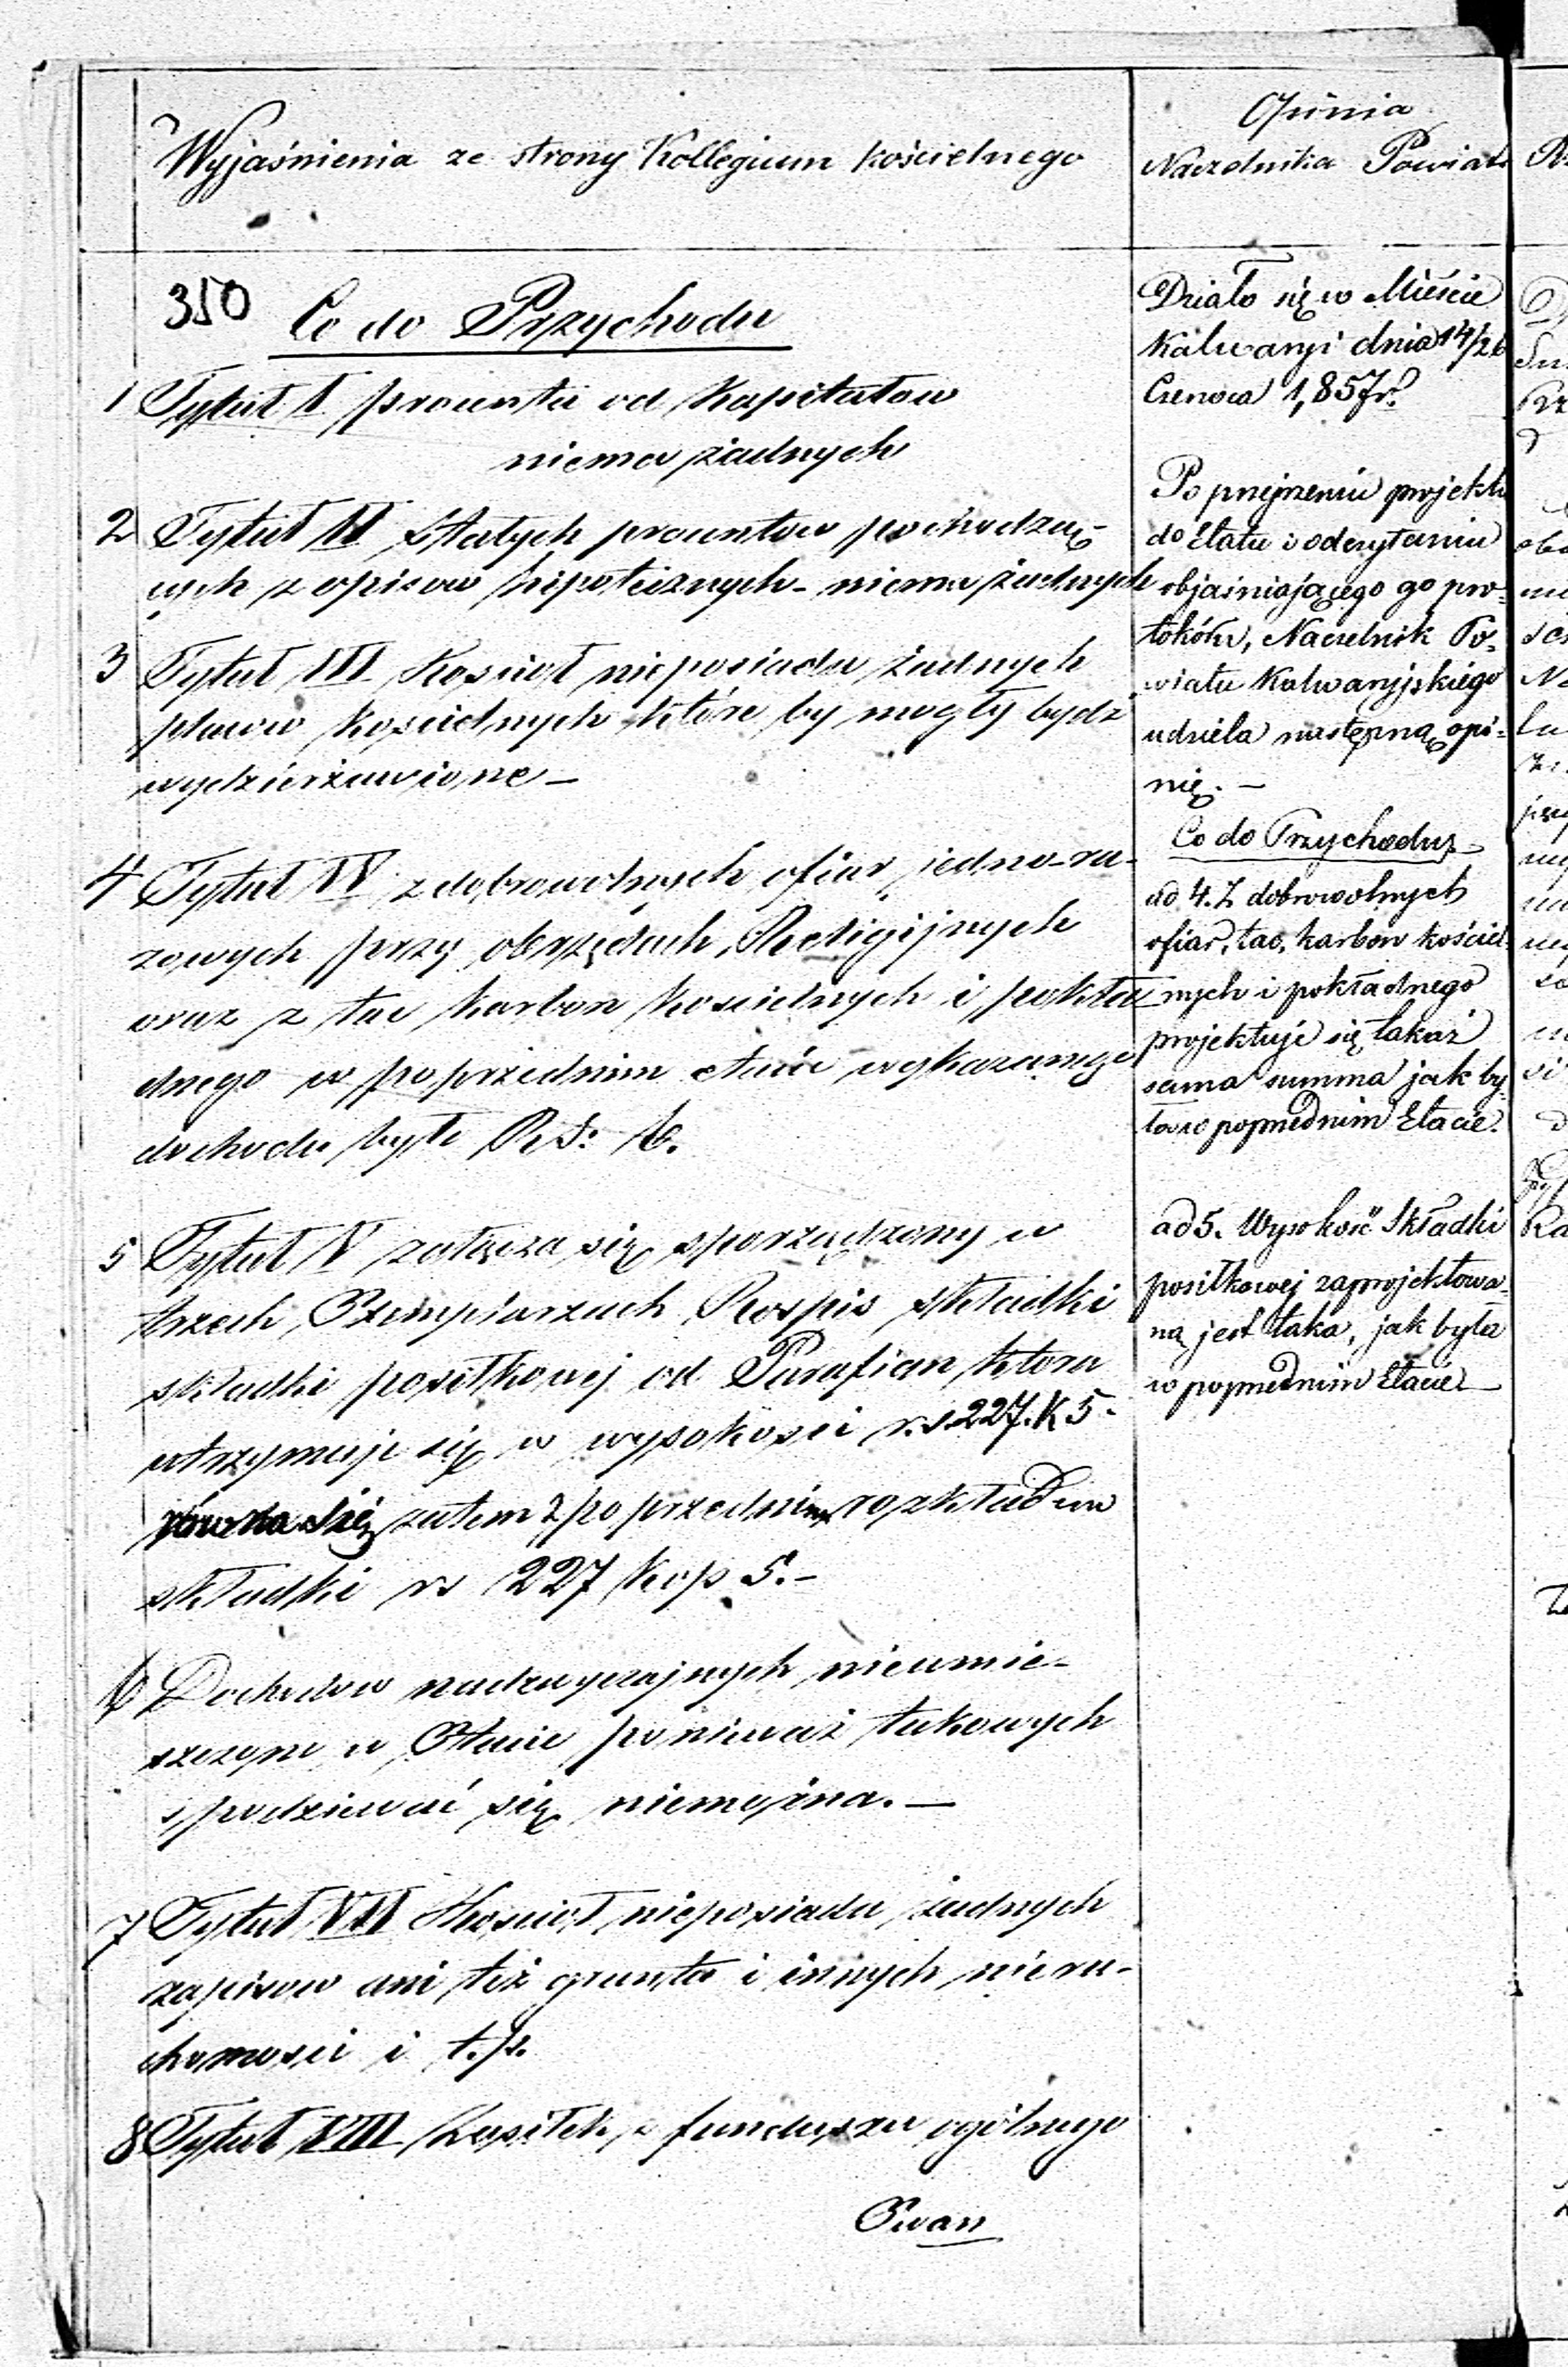 Wyjaśnienia ze strony Kollegium kościelnego
350 Co do Przychodu
1 Tytuł I procentu od Kapitałow
niema żadnych
2 Tytuł II Stałych procentow pochodzą-
cych z opisow hipotecznych - niema żadnych
3 Tytuł III Koscioł nieposiada żadnych
placow Koscielnych które by mogły bydź
wydzierżawione -
4 Tytuł IV z dobrowolnych ofiar jedno-ra-
zowych przy obrzędach Religijnych
oraz z tac Karbon Koscielnych i pokła
dnego w poprzednim etacie wykazanego
dochodu było R.S: 6.
5 Tytuł V załącza się sporządzony w
trzech Exemplarzach Rospis składki
składki posiłkowej od Parafian ktora
utrzymuje się w wysokosci r.s. 227. K 5.
równa się zatem z poprzednim rozkładem
składki rs 227 Kop 5. -
6 Dochodow nadzwyczajnych nieumie-
szczono w Etacie ponieważ takowych
spodziewać się niemożna. -
7 Tytuł VII Koscioł nieposiada żadnych
zapisow ani też grunta i innych nieru-
chomosci i t.p.
8 Tytuł VIII Zasiłek z funduszu ogólnego
Ewan
Opinia
Naczelnika Powiatu
Działo się w Mieście
Kalwaryi dnia 14/26
Czerwca 1,857 r.
Po przejrzeniu projektu
do Etatu i odczytaniu
objaśniającego go pro=
tokółu, Naczelnik Po=
wiatu Kalwaryjskiego
udziela następną opi=
nię. -
Co do Przychodu
ad 4. Z dobrowolnych
ofiar, tac, karbon kościel
nych i pokładnego
projektuje się takaż
sama summa jak by
ła w poprzednim Etacie.
ad 5. Wysokość Składki
posiłkowej zaprojektowa=
ną jest taka, jak była
w poprzednim Etacie